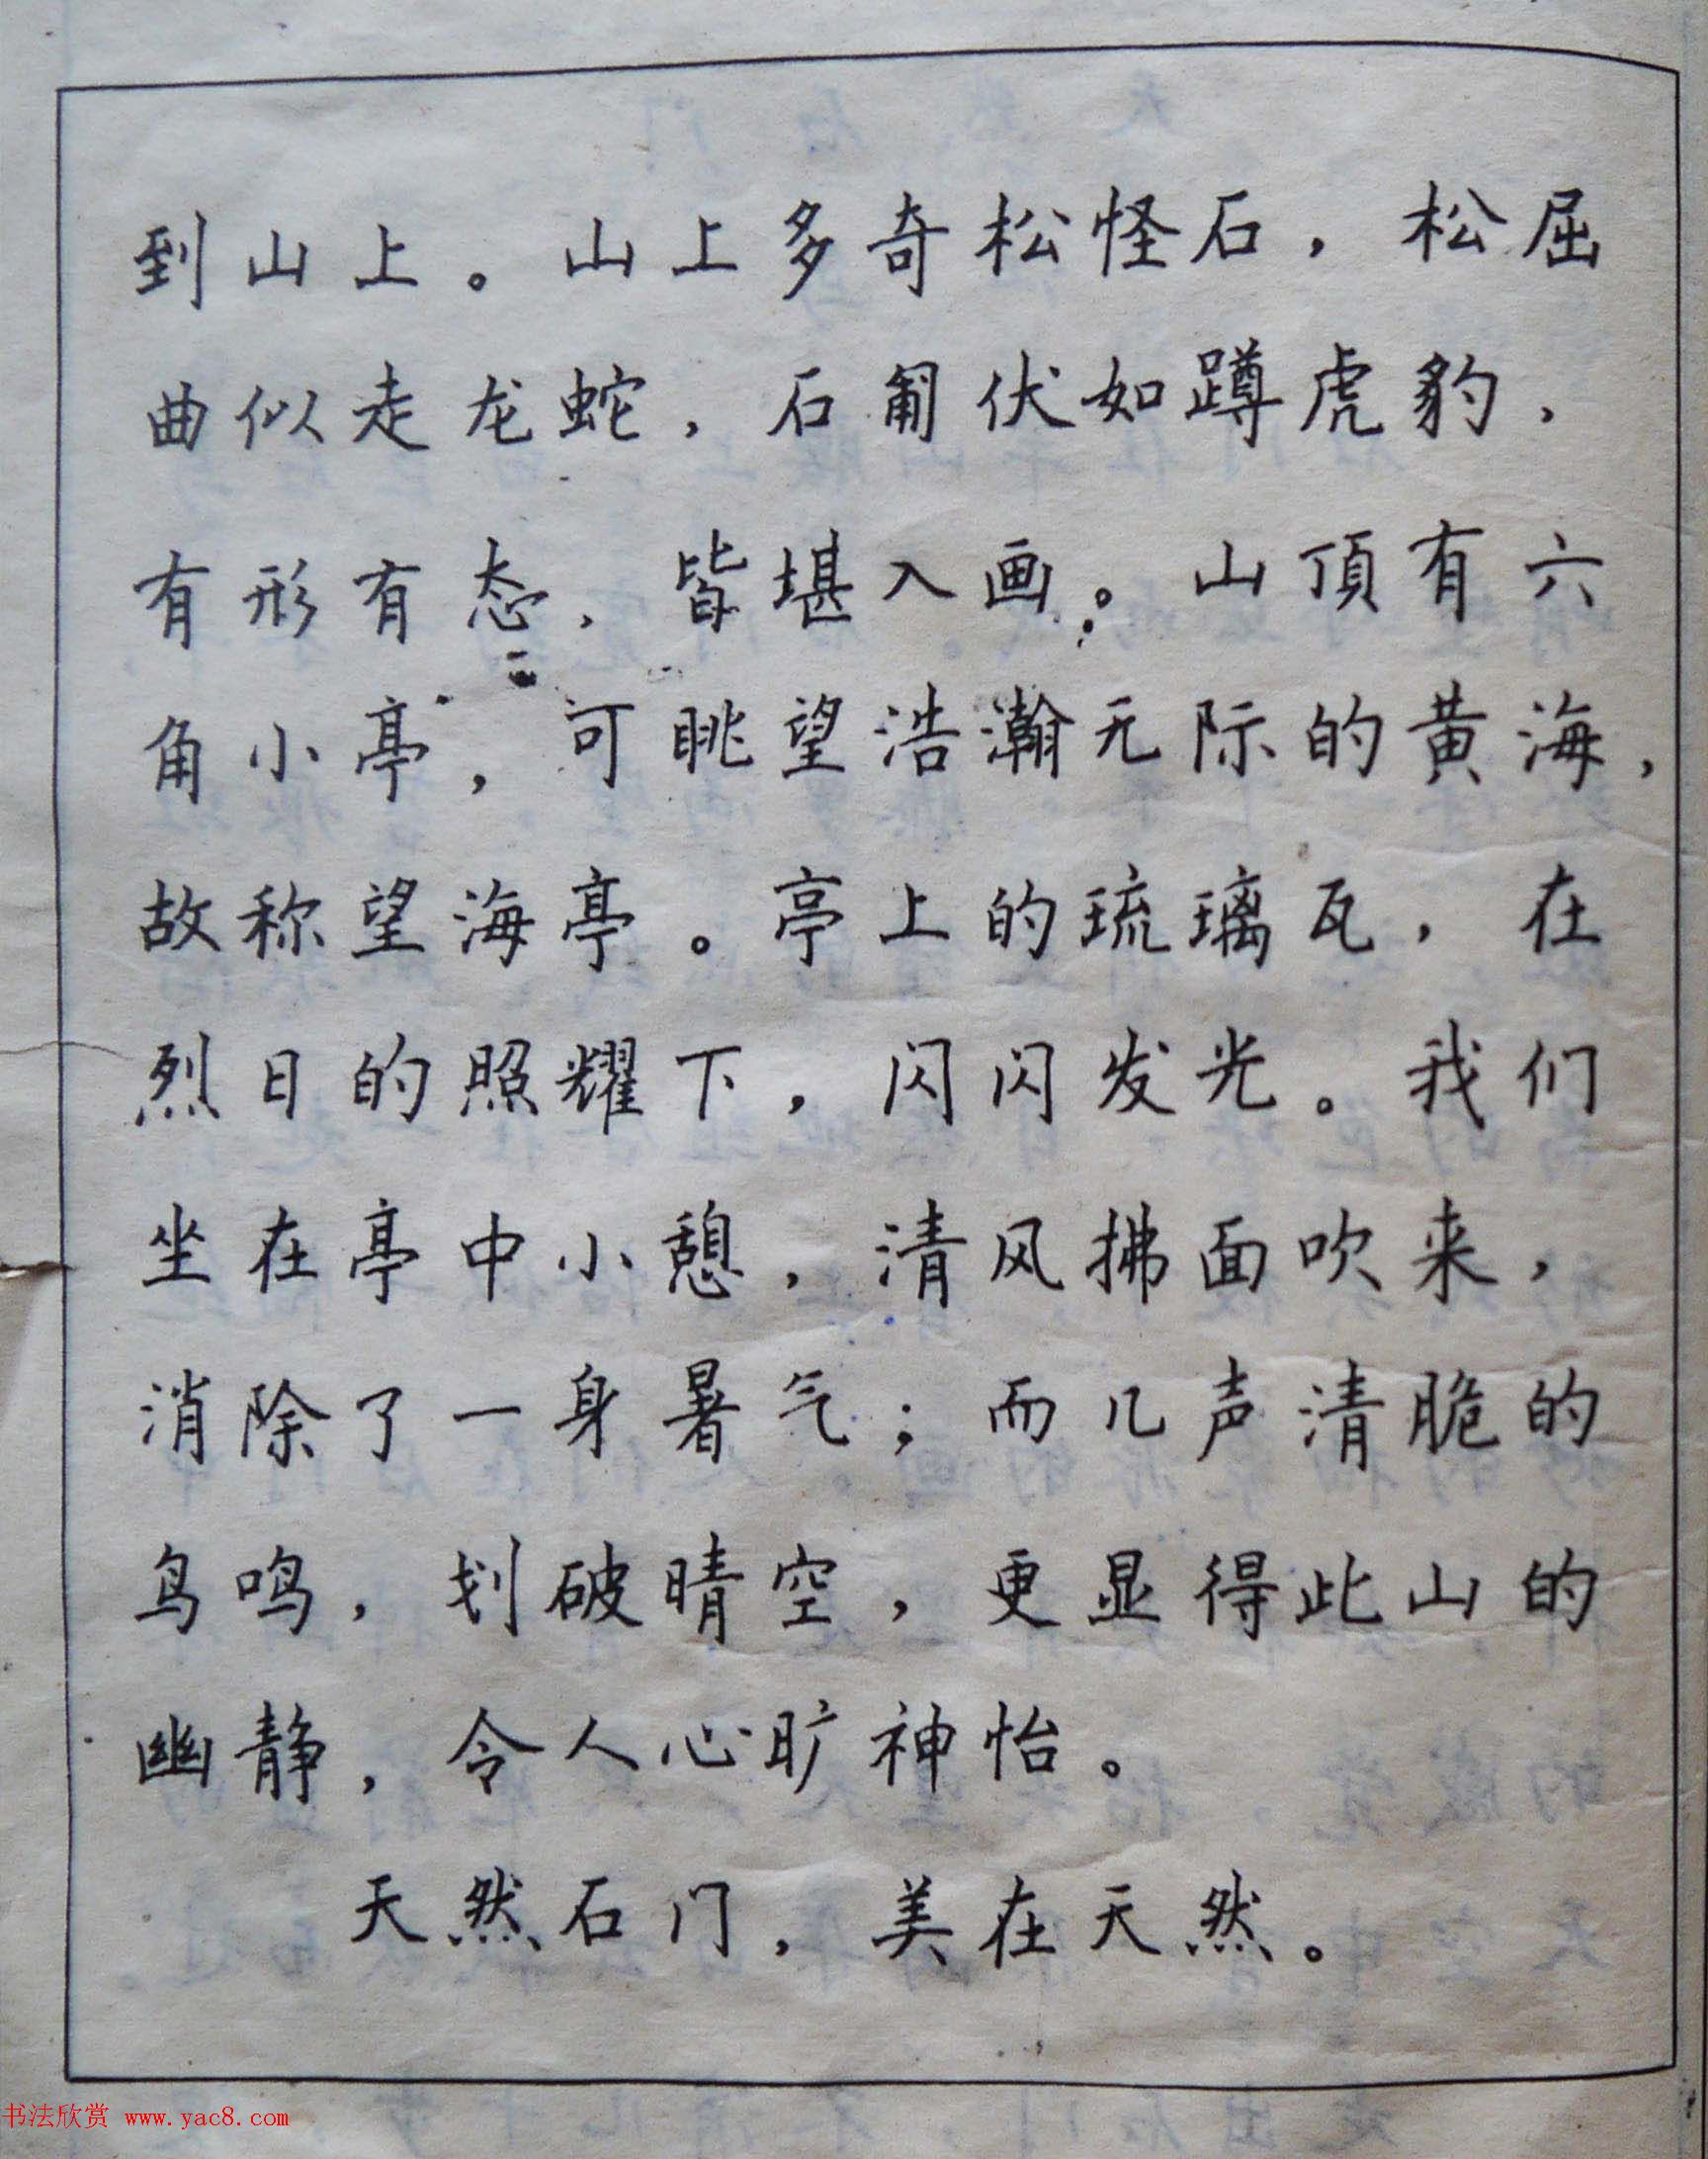 到山上。山上多奇松怪石，松屈
曲似走龙蛇，石匍伏如蹲虎豹，
有形有态，皆堪入画。山頂有六
角小亭，可眺望浩瀚无际的黄海，
故称望海亭。亭上的琉璃瓦，在
烈日的照耀下，闪闪发光。我们
坐在亭中小憩，清风拂面吹来，
消除了一身暑气；而几声清脆的
鸟鸣，划破晴空，更显得此山的
幽静，令人心旷神怡。
天然石门，美在天然。
书法欣赏 www.yac8.com